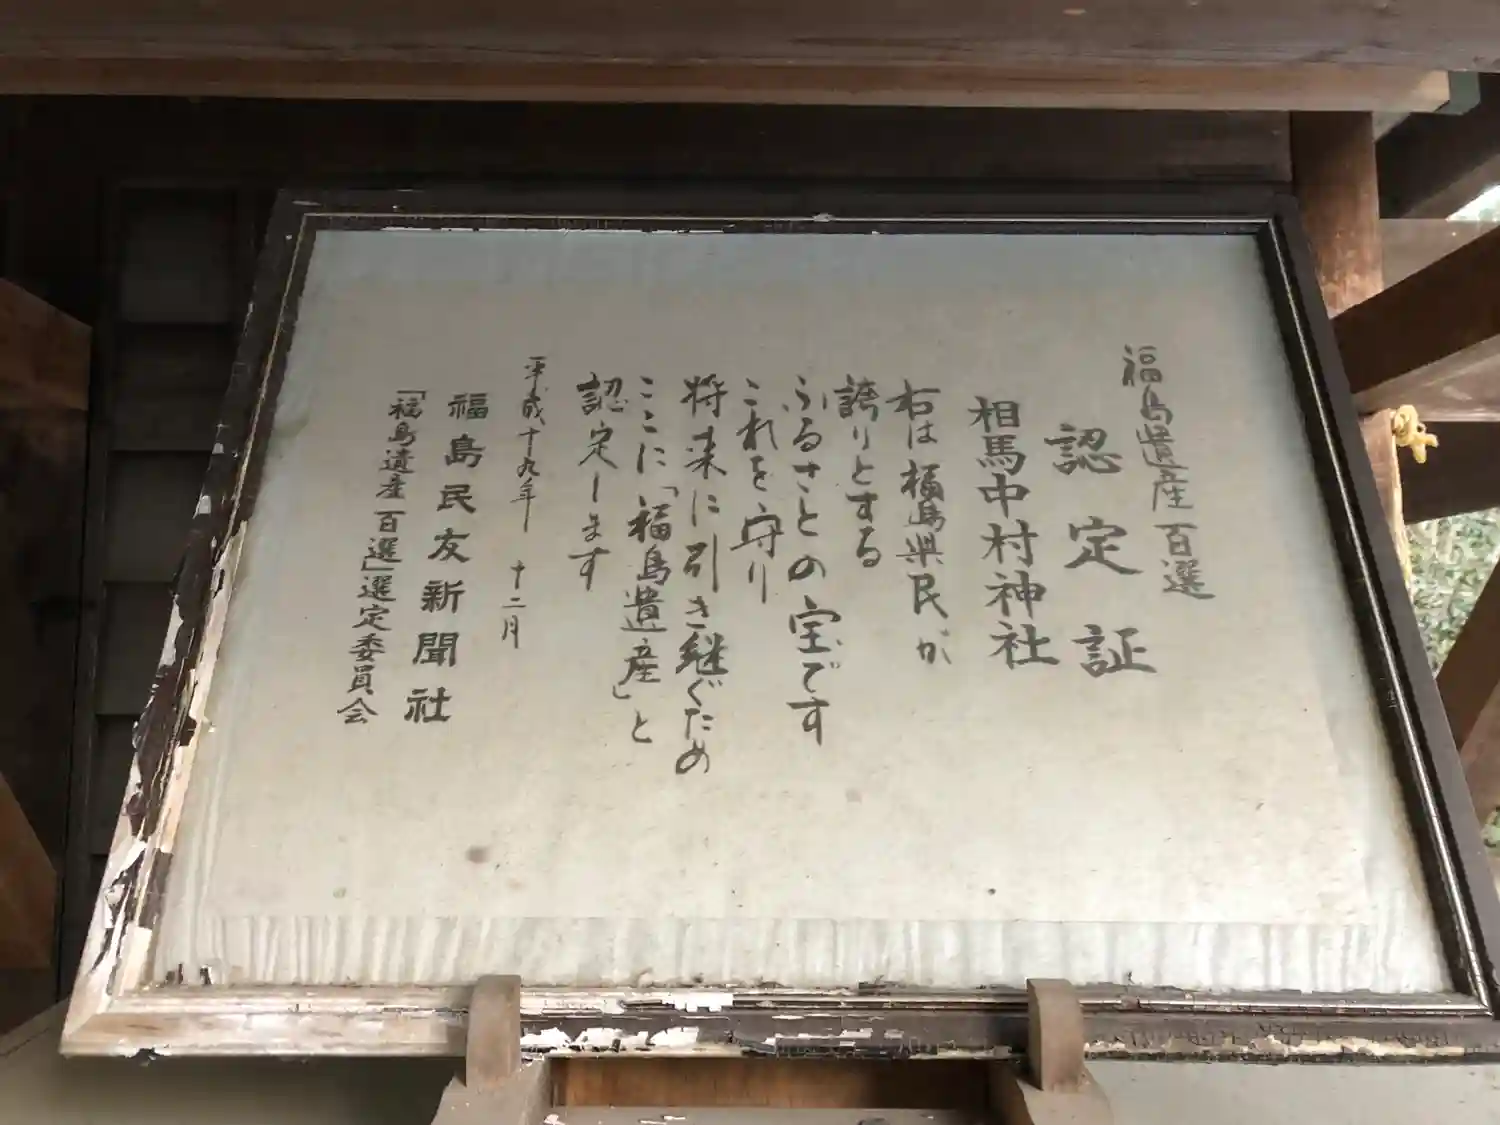 福島遺産百選
認定証
相馬中村神社
右は福島県民が
誇りとする
ふるさとの宝です
これを守り
将来に引き継ぐため
ここに「福島遺産」と
認定します
平成十九年 十二月
福島民友新聞社
「福島遺産百選」選定委員会